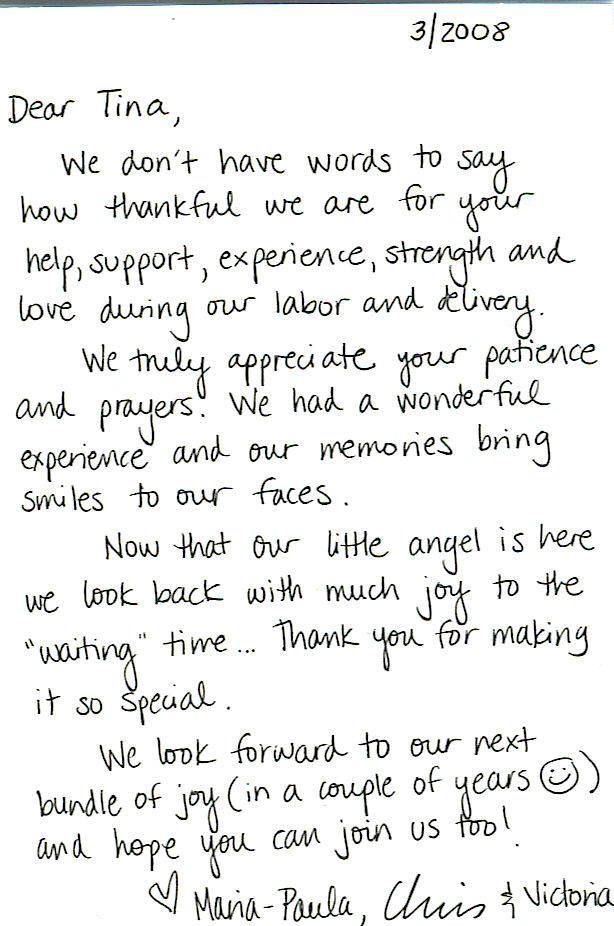 3/2008
Dear Tina,
We don't have words to say
how thankful we are for your
help, support, experience, strength and
love during our labor and delivery.
We truly appreciate your patience
and prayers! We had a wonderful
experience and our memories bring
smiles to our faces.
Now that our little angel is here
we look back with much joy to the
"waiting" time... Thank you for making
it so special.
We look forward to our next
bundle of joy (in a couple of years ☺)
and hope you can join us too!
♡ Maria-Paula, Chris & Victoria